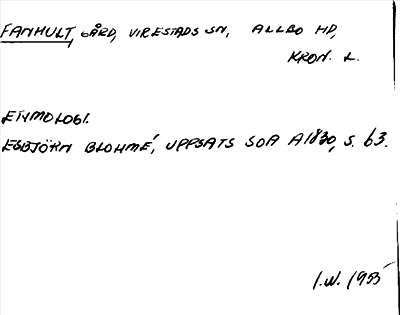 FANHULT, GÅRD, VIRESTADS SN, ALLBO HD,
KRON. L.
ETYMOLOGI.
ESBJÖRN BLOHMÉ, UPPSATS SOA A1830, S. 63.
I.W. 1955